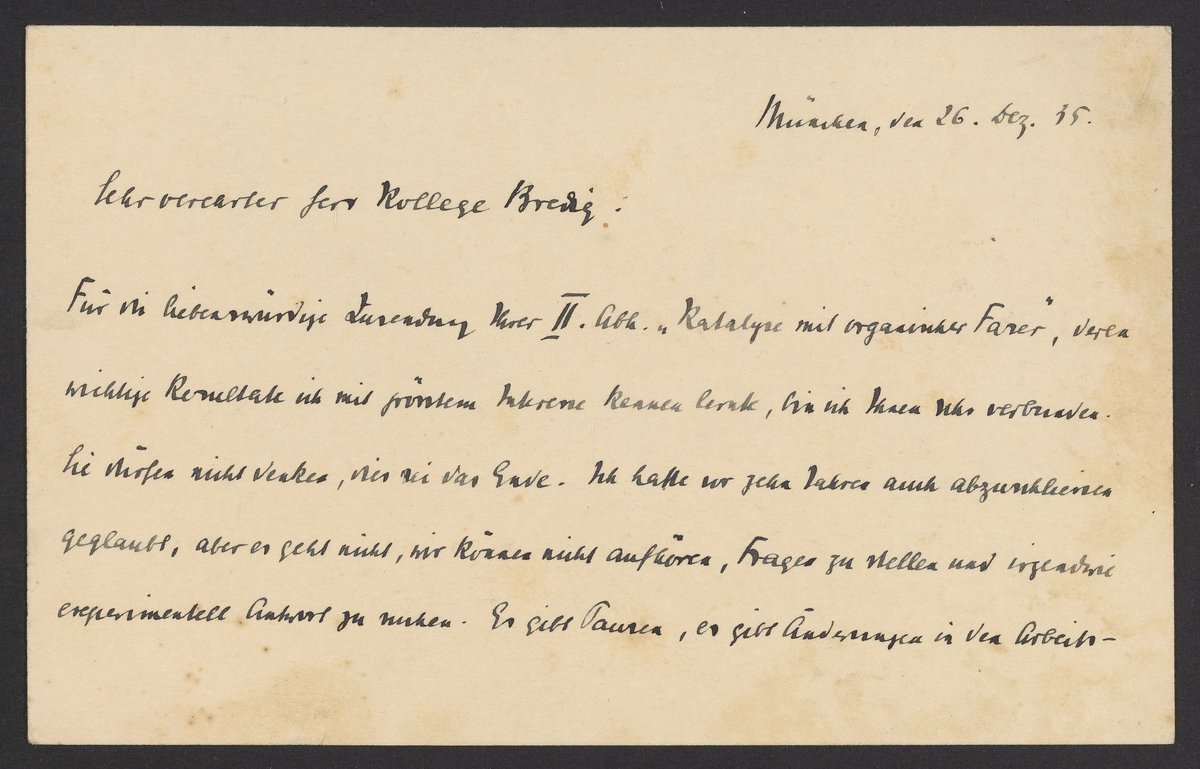 München, den 26. Dez. 35.
Sehr verehrter Herr Kollege Bredig:
Für die liebenswürdige Zusendung Ihrer II. Abh. „Katalyse mit organischer Faser", deren
wichtige Resultate ich mit grösstem Interesse kennen lernte, bin ich Ihnen sehr verbunden.
Sie dürfen nicht denken, dies sei das Ende. Ich hatte vor zehn Jahren auch abzuschliessen
geglaubt, aber es geht nicht, wir können nicht aufhören, Fragen zu stellen und irgendwie
experimentell Antwort zu suchen. Es gibt Pausen, es gibt Änderungen in den Arbeits-